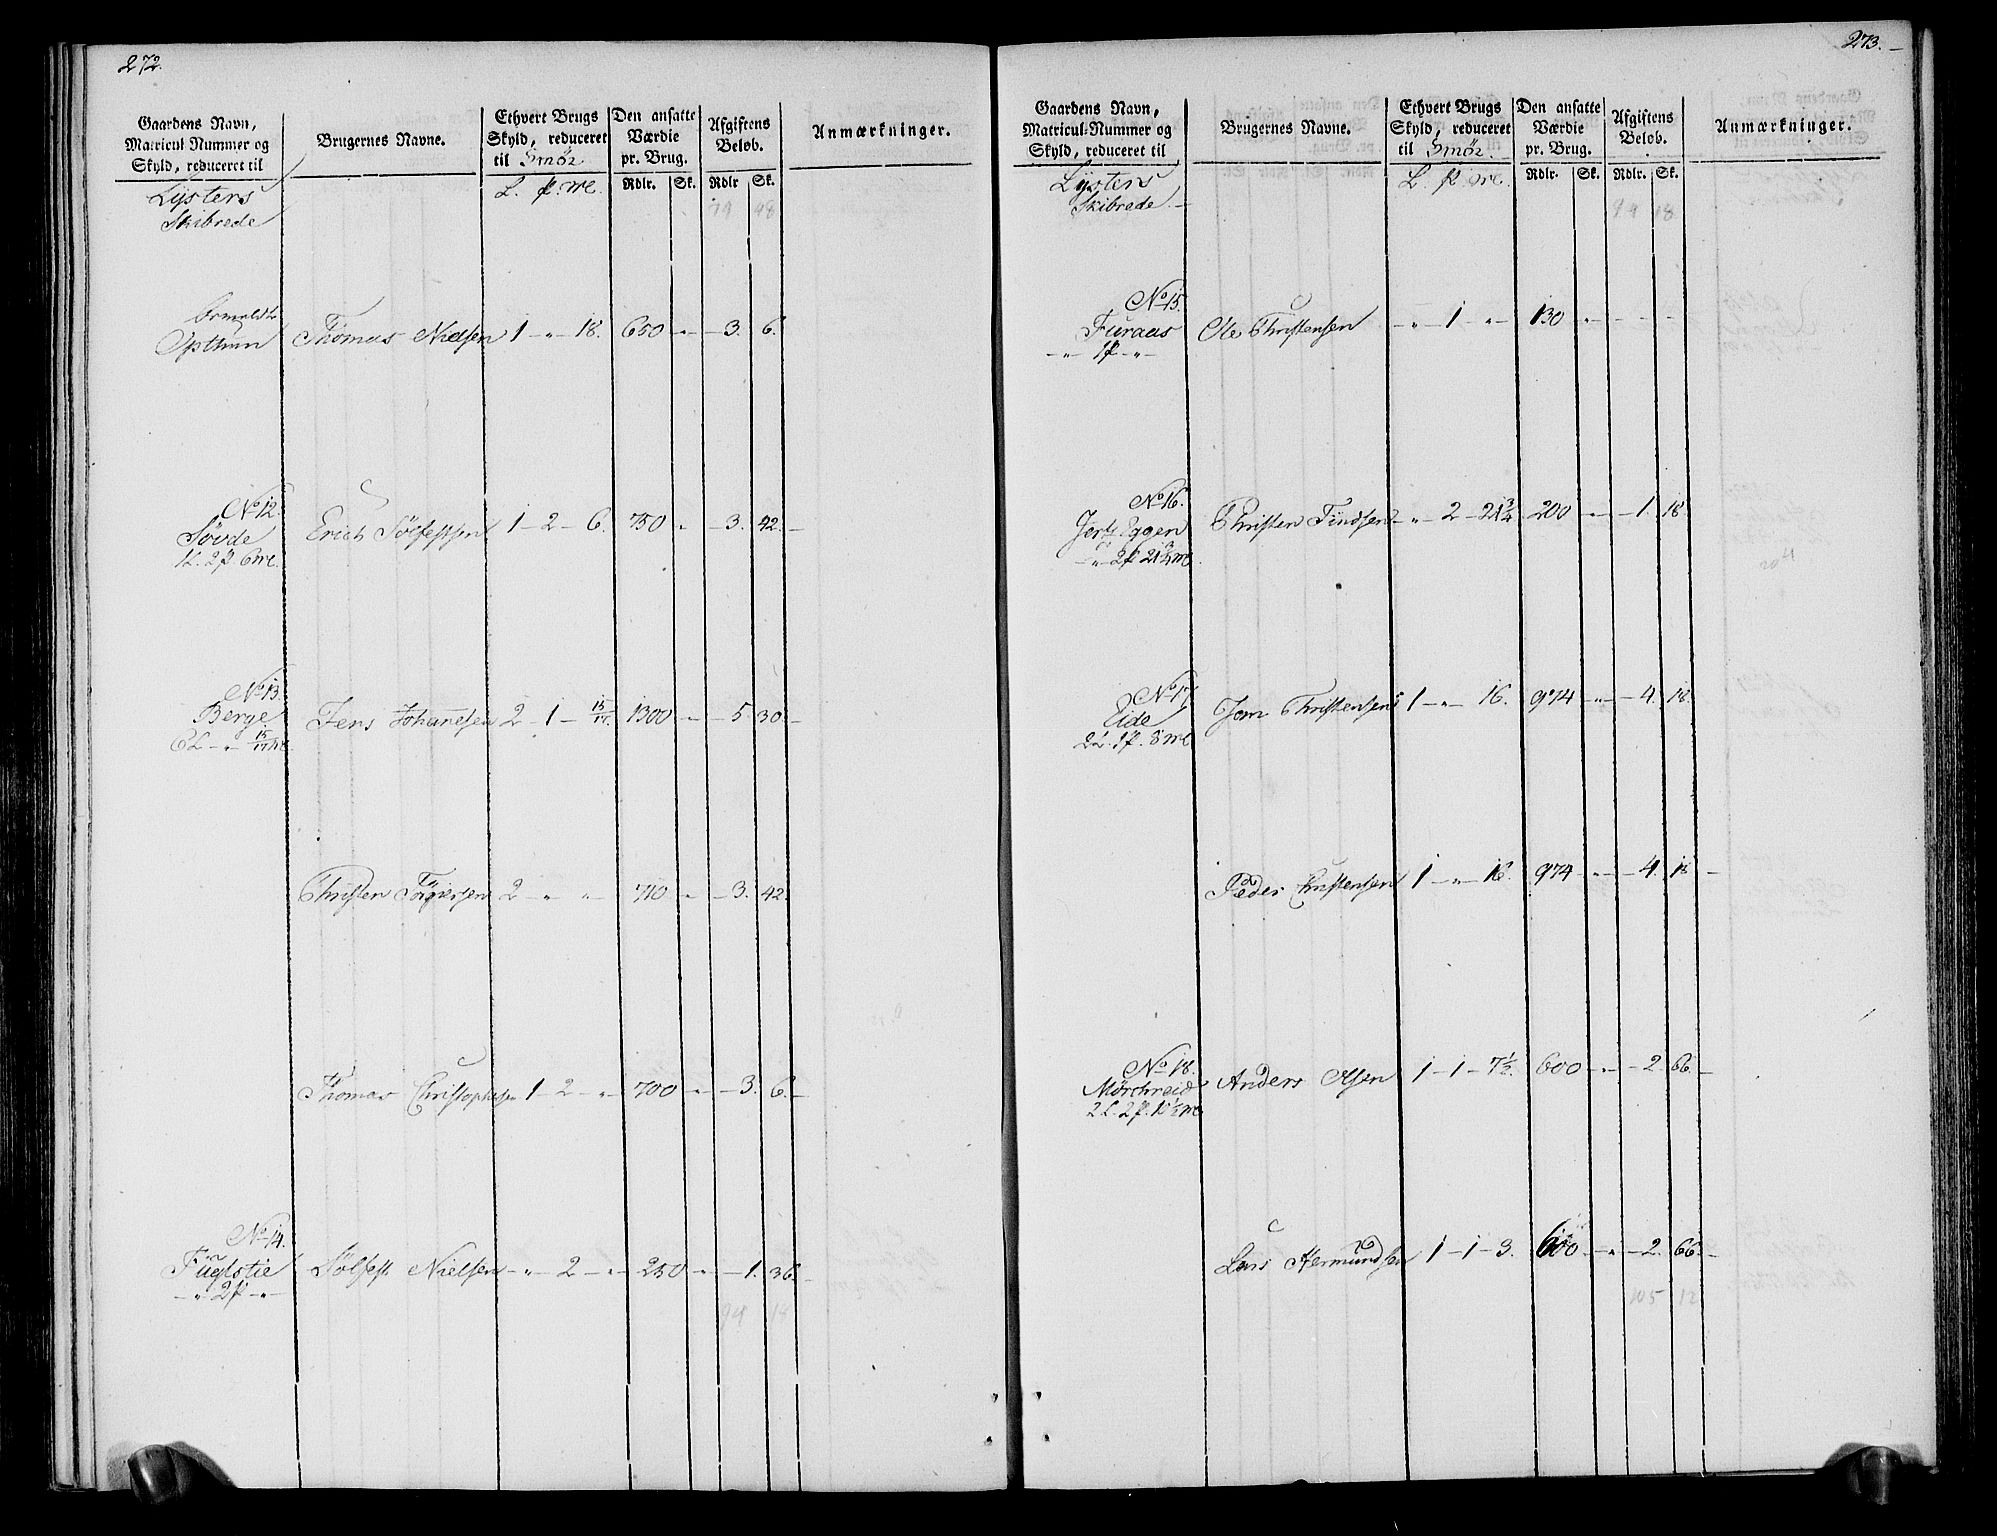 272.
Gaardens Navn, Matricul Nummer og Skyld, reduceret til
Brugernes Navne.
Ethvert Brugs Skyld, reduceret til Smör
Den ansatte Værdie pr. Brug.
Afgiftens Beløb.
Anmærkninger.
L. P. Mk. Rdlr. Sk. Rdlr Sk.
Lysters
Skibrede
Opthun Thomas Nielsen 1 - " - 18. 650 " - 3. 6.
No 12.
Sövde Erich Sölfestsen 1 - 2 - 6. 750 " - 3. 42. -
1L. 2P. 6Mk.
No 13.
Berge Jens Johannesen 2 - 1 - 15/17. 1300 - 5. 30. -
6L - " - 15/17 Mk
Christen Törgersen 2 - " " - 710 " - 3. 42.
Thomas Christophersen 1 - 2 - " - 700 " - 3. 6. -
No 14.
Fuglstie Sölfest Nielsen - " - 2 - " - 250 " - 1. 36. -
- " - 2P - " -
94 18
273. -
Gaardens Navn, Matricul-Nummer og Skyld, reduceret til
Brugernes Navne.
Ethvert Brugs Skyld, reduceret til Smör.
Den ansatte Værdie pr. Brug.
Afgiftens Beløb.
Anmærkninger.
L. P. Mk. Rdlr. Sk. Rdlr. Sk.
Lysters
Skibrede. -
94 18
No 15.
Furaas Ole Christensen - " - 1 - " - 130 " - - -
- " - 1P - " -
No 16.
Christen Findsen - " - 2 - 21 3/4 200 - " - 1. 18
- " - 2P 21 3/4 Mk
No 17.
Eide Christensen 1 - " - 16. 974 - " - 4. 18.
2L. 1P. 8Mk
Peder Christensen 1 - " - 16. 974 - " - 4. 18 -
No 18.
Mörchreid Anders Olsen 1 - 1 - 7 1/2. 600 - " - 2. 66. -
2L. 2P. 10 1/2 Mk
Lars Hermundsen 1 - 1 - 3. 600 - " - 2. 66. -
105 12